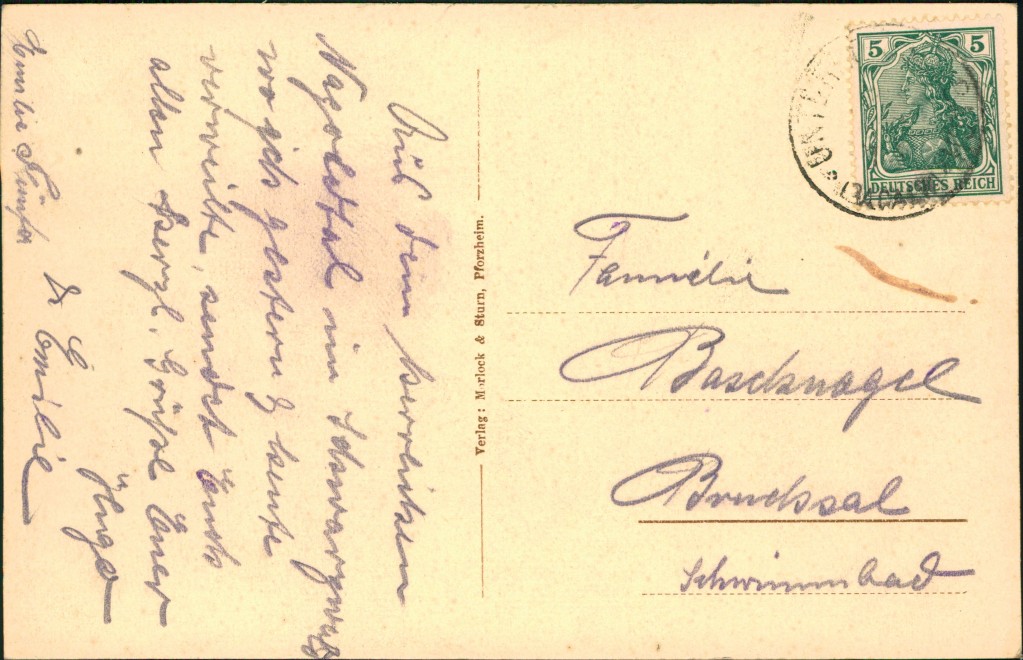 Aus dem herrlichen
Nagoldtal im Schwarzwald
wo ich gestern & heute
verweilte, sendet Euch
allen herzl. Grüße Euer
Hugo
& Emilie
Emilie
Verlag: Morlock & Sturn, Pforzheim.
5 5
DEUTSCHES REICH
Familie
Bascknagel
Bruchsal
Schwimmbad